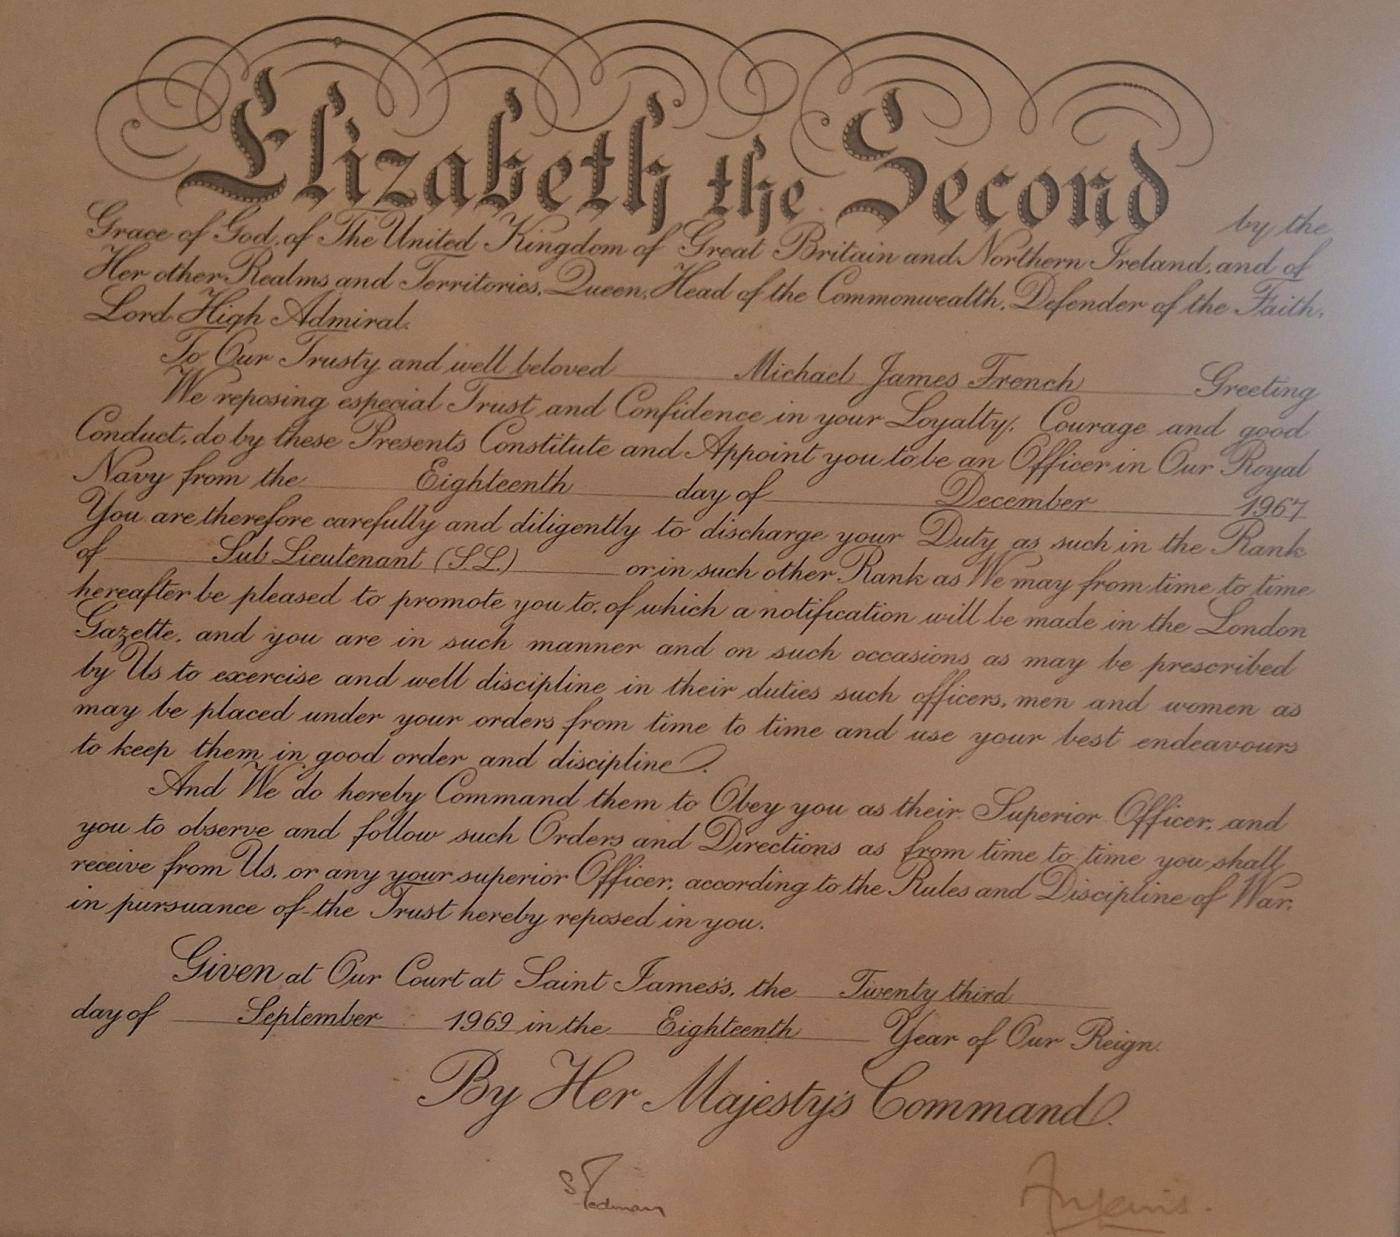 Elizabeth the Second by the
Grace of God, of The United Kingdom of Great Britain and Northern Ireland, and of
Her other Realms and Territories, Queen, Head of the Commonwealth, Defender of the Faith,
Lord High Admiral.
To Our Trusty and well beloved Michael James French Greeting
We reposing especial Trust and Confidence in your Loyalty, Courage and good
Conduct, do by these Presents Constitute and Appoint you to be an Officer in Our Royal
Navy from the Eighteenth day of December 1967
You are therefore carefully and diligently to discharge your Duty as such in the Rank
of Sub Lieutenant (S.L.) or in such other Rank as We may from time to time
hereafter be pleased to promote you to, of which a notification will be made in the London
Gazette, and you are in such manner and on such occasions as may be prescribed
by Us to exercise and well discipline in their duties such officers, men and women as
may be placed under your orders from time to time and use your best endeavours
to keep them in good order and discipline.
And We do hereby Command them to Obey you as their Superior Officer, and
you to observe and follow such Orders and Directions as from time to time you shall
receive from Us, or any your superior Officer, according to the Rules and Discipline of War,
in pursuance of the Trust hereby reposed in you.
Given at Our Court at Saint James's, the Twenty third
day of September 1969 in the Eighteenth Year of Our Reign.
By Her Majesty's Command.